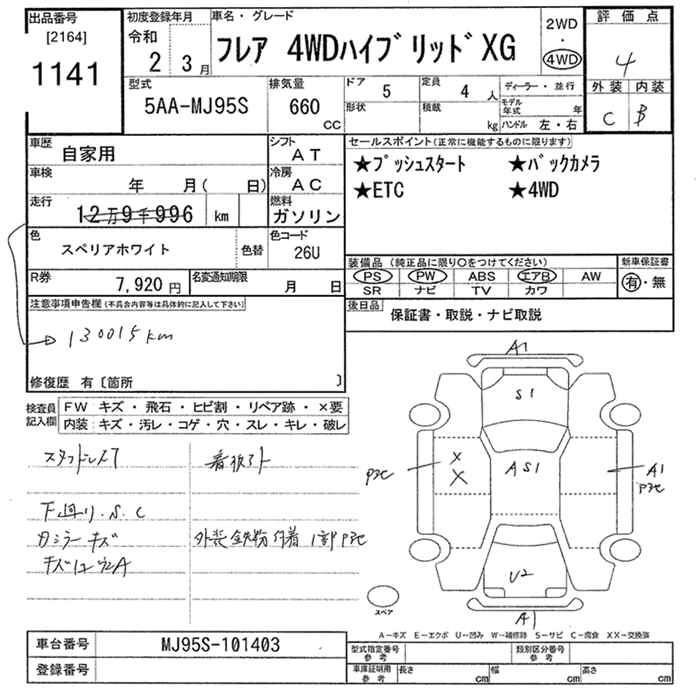 出品番号
[2164]
1141
初度登録年月
令和
2 3月
車名・グレード
フレア 4WDハイブリッドXG
2WD
・
4WD
評価点
4
外装 内装
C B
型式
5AA-MJ95S
排気量
660 CC
ドア 5
定員 4人
形状
積載 kg
ディーラー・並行
モデル年式 年
ハンドル 左・右
車歴
自家用
シフト
AT
車検
年 月( 日)
冷房
AC
走行
12万9千996 km
燃料
ガソリン
色
スペリアホワイト
色替
色コード
26U
R券
7,920円
名変通知期限
月 日
セールスポイント(正常に機能するものに限ります)
★プッシュスタート ★バックカメラ
★ETC ★4WD
装備品(純正品に限り○をつけてください)
PS PW ABS エアB AW
SR ナビ TV カワ
新車保証書
有・無
後日品
保証書・取説・ナビ取説
注意事項申告欄(不具合内容等は具体的に記入して下さい)
130015km
修復歴 有〔箇所 〕
検査員記入欄
FW キズ・飛石・ヒビ割・リペア跡・×要
内装:キズ・汚レ・コゲ・穴・スレ・キレ・破レ
スタッドレス7
下廻り.S.C
カミラーキズ
外装鉄粉付着 1部Pзe
A1
S1
AS1
X
X
Pзe
A1
Pзe
U2
A1
スペア
A-キズ E-エクボ U-凹み W-補修跡 S-サビ C-腐食 XX-交換済
車台番号
MJ95S-101403
登録番号
型式指定番号
参考
類別区分番号
参考
車庫証明用
参考
長さ cm
幅 cm
高さ cm